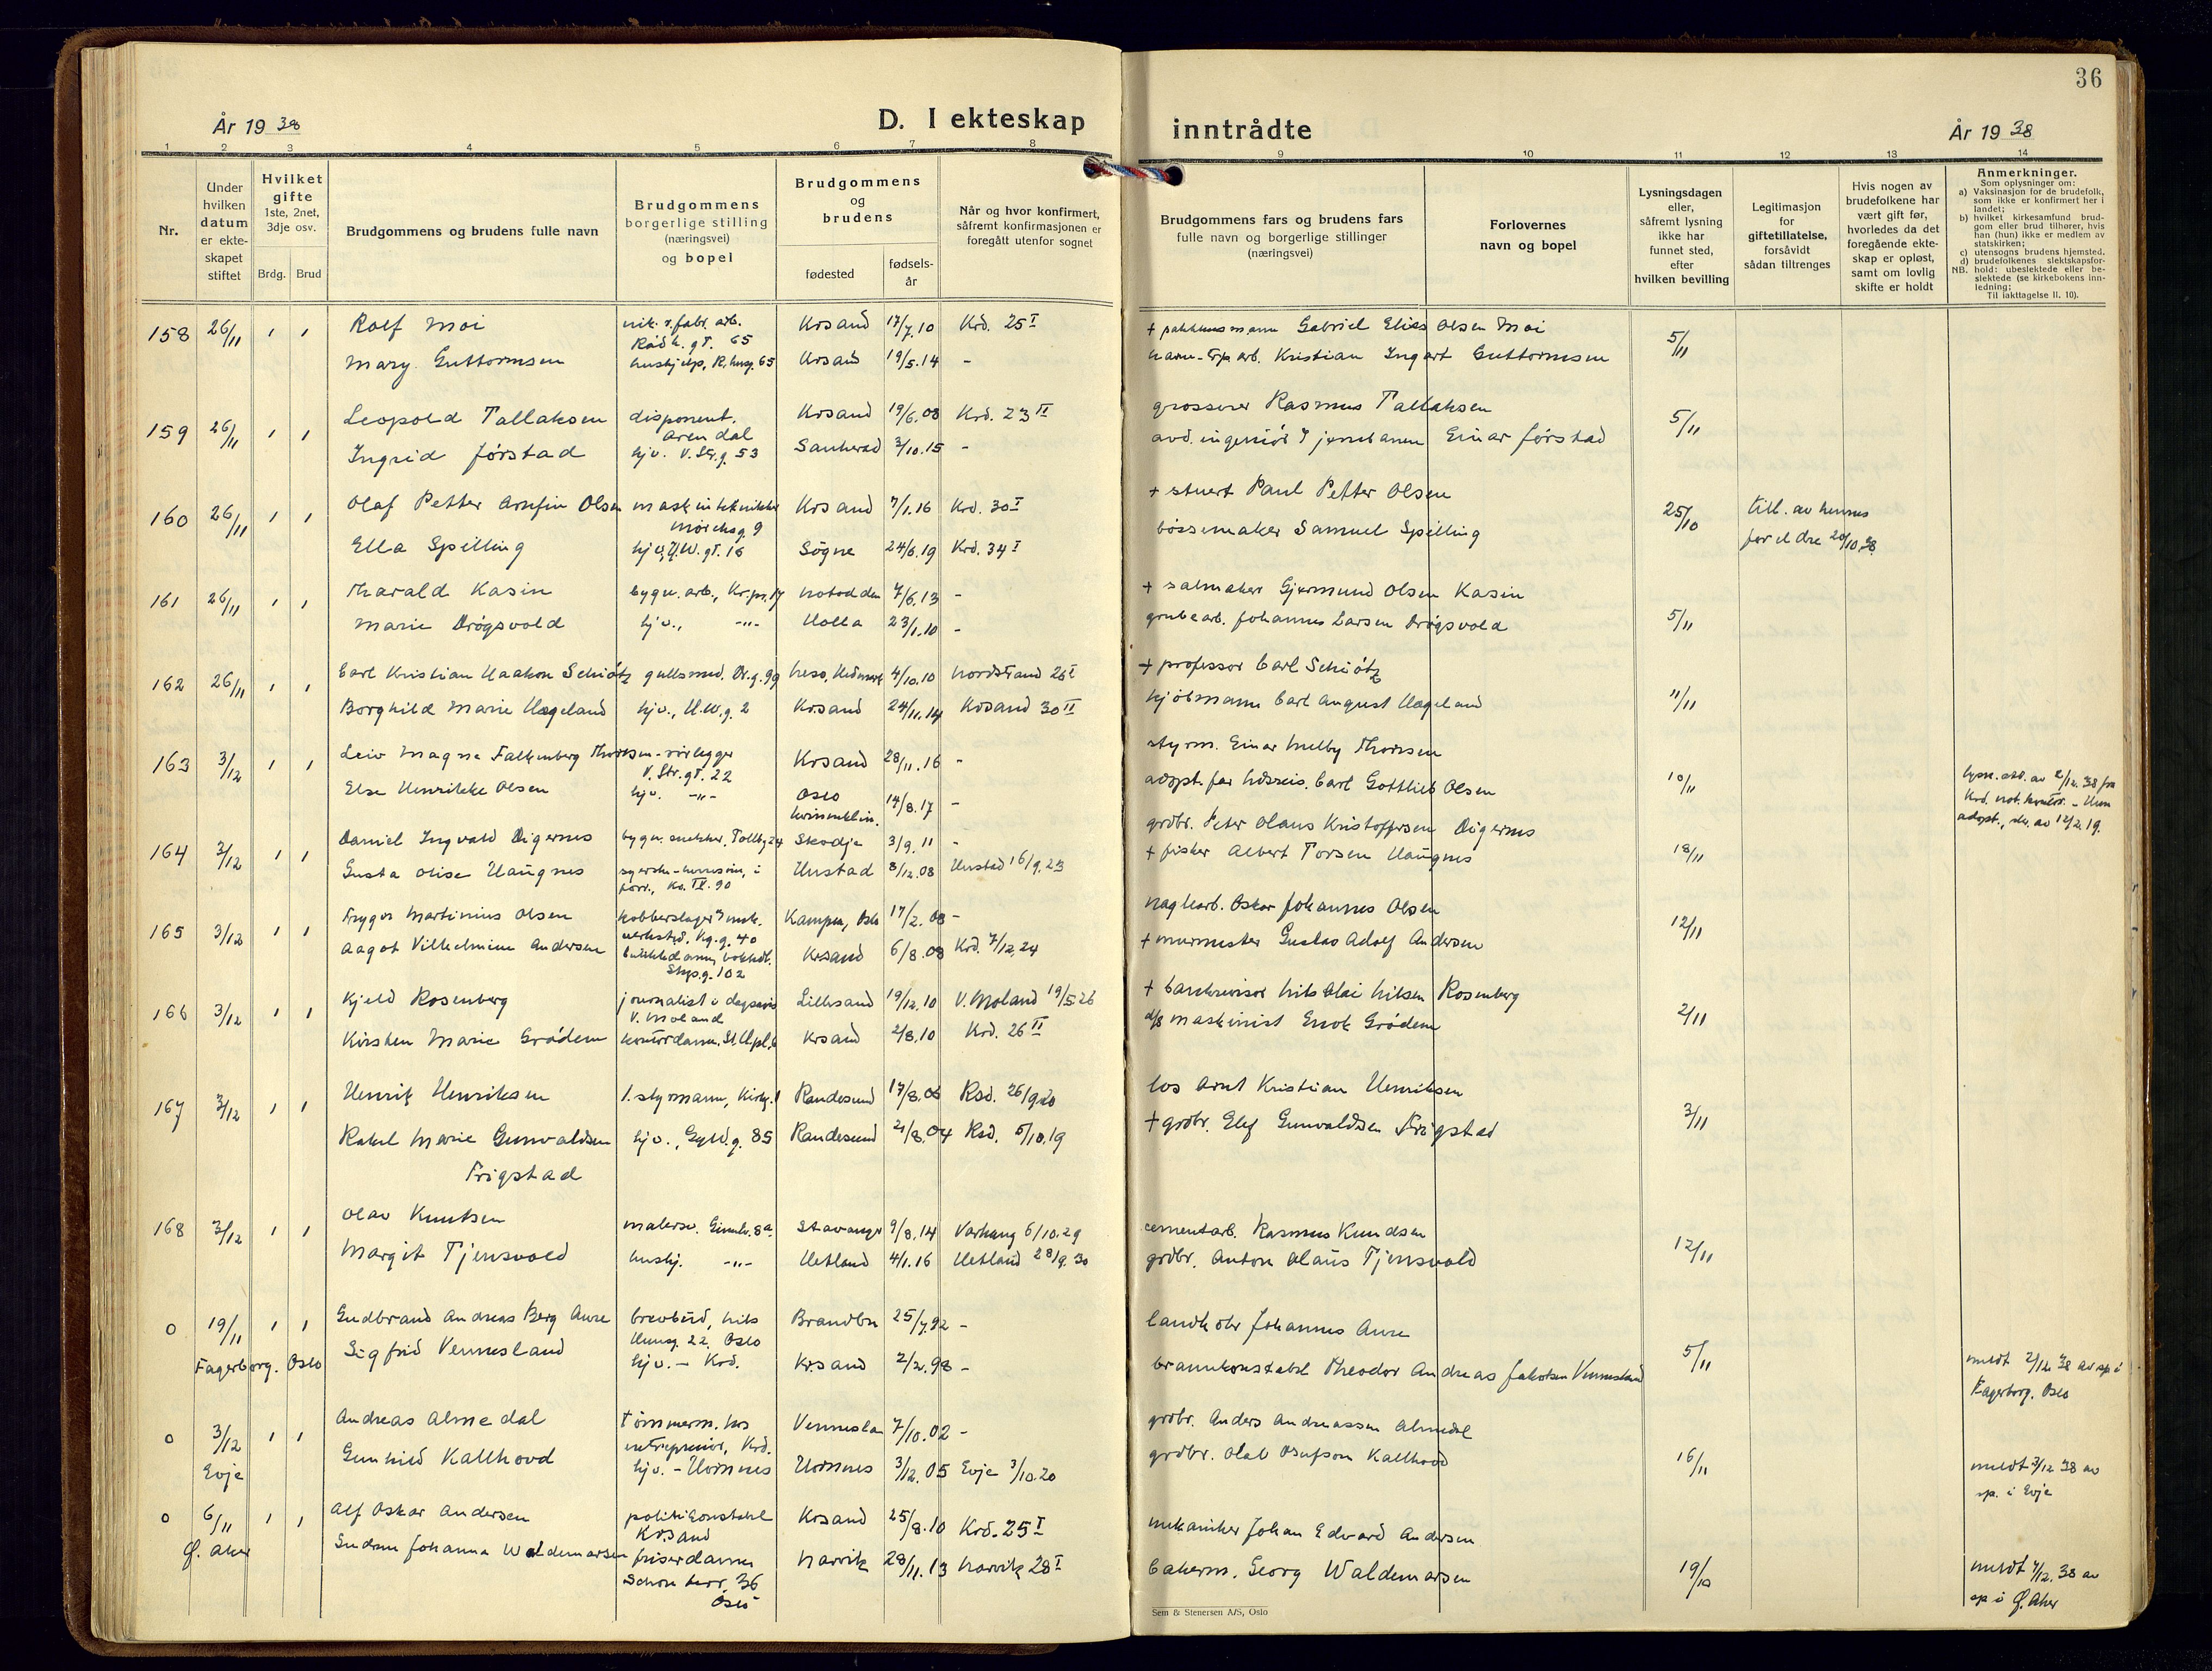 36
År 19 38
D. I ekteskap
inntrådte
År 19 38
1 2 3 4 5 6 7 8 9 10 11 12 13 14
Nr.
Under hvilken datum er ekte-skapet stiftet
Hvilket gifte 1ste, 2net, 3dje osv.
Brdg. Brud
Brudgommens og brudens fulle navn
Brudgommens borgerlige stilling (næringsvei) og bopel
Brudgommens og brudens
fødested
fødsels-år
Når og hvor konfirmert, såfremt konfirmasjonen er foregått utenfor sognet
Brudgommens fars og brudens fars fulle navn og borgerlige stillinger (næringsvei)
Forlovernes navn og bopel
Lysningsdagen eller, såfremt lysning ikke har funnet sted, efter hvilken bevilling
Legitimasjon for giftetillatelse, forsåvidt sådan tiltrenges
Hvis nogen av brudefolkene har vært gift før, hvorledes da det foregående ekte-skap er opløst, samt om lovlig skifte er holdt
Anmerkninger.
Som oplysninger om:
a) Vaksinasjon for de brudefolk, som ikke er konfirmert her i landet;
b) hvilket kirkesamfund brud-gom eller brud tilhører, hvis han (hun) ikke er medlem av statskirken;
c) utensogns brudens hjemsted.
d) brudefolkenes slektskapsfor-hold: ubeslektede eller be-slektede (se kirkebokens inn-ledning;
NB. Til iakttagelse II. 10).
158 26/11 1 1 Rolf Moi Rådh.gt. 65 Krsand 17/7.10 Krd. 25 I + pakkhusmann Gabriel Elias Olsen Moi 5/11
Mary Guttormsen hushjelp, R.husg. 65 Krsand 19/5.14 - arb. Kristian Ingart Guttormsen
159 26/11 1 1 Leopold Tallaksen disponent. Arendal Krsand 19/6.08 Krd. 23 II grosserer Rasmus Tallaksen 5/11
Ingrid Jörstad hjv. V.Str.g. 53 Sauherad 3/10.15 - avd. ingeniör v/ jernbanen Einar Jörstad
160 26/11 1 1 Olaf Petter Arnfin Olsen maskintekniker Mörchsg. 9 Krsand 7/1.16 Krd. 30 I + stuert Paul Petter Olsen 25/10 till. av hennes
Ella Spilling hjv. H.W.gt. 16 Sögne 24/6.19 Krd. 34 I bössemaker Samuel Spilling foreldre 20/10.38
161 26/11 1 1 Tharald Kasin bygn.arb., Kr.pr. 17 Notodden 7/6.13 - + salmaker Gjermund Olsen Kasin 5/11
Marie Drögsvold hjv., -"- Holla 23/1.10 - grubearb. Johannes Larsen Drögsvold
162 26/11 1 1 Carl Kristian Haakon Schiötz gullsmed. Dr.g. 99 Nes, Hedmark 4/10.10 Nordstrand 26 I + professor Carl Schiötz 11/11
Borghild Marie Hægeland hjv., H.W.g. 2 Krsand 24/11.14 Krsand 30 II kjöbmann Carl August Hægeland
163 3/12 1 1 Leiv Magne Falkenberg Thorsen - rörlegger V.Str.gt. 22 Krsand 28/11.16 - styrm. Einar Melby Thorsen 10/11
Else Henrikke Olsen hjv. -"- Oslo kvinneklin. 14/8.17 - adopt.far Carl Gottlieb Olsen
lysn.att. av 2/12.38 fra
Krd. not.kontor. - Hun
adopt., av 12/2.19.
164 3/12 1 1 Daniel Ingvald Digernes bygn.snekker, Tollb. 24 Skodje 3/9.11 - grdbr. Peter Olaus Kristoffersen Digernes 18/11
Gusta Olise Haugnes Hustad 8/12.08 Hustad 16/9.23 + fisker Albert Torsen Haugnes
165 3/12 1 1 Trygve Martinius Olsen kobberslager verksted, Kg.g. 40 Kampen, Oslo 17/2.08 - naglearb. Oskar Johannes Olsen 12/11
Aagot Vilhelmine Andersen butikkdame, bokhdl. Skip.g. 102 Krsand 6/8.08 Krd. 7/12.24 + murmester Gustav Adolf Andersen
166 3/12 1 1 Kjeld Rosenberg journalist i dagsavis V. Moland Lillesand 19/12.10 V. Moland 19/5 26 + bankrevisor Nils Olai Nilsen Rosenberg 2/11
Kirsten Marie Grödem kontordame, St.H.pl. 6 Krsand 2/8.10 Krd. 26 II d/s maskinist Enok Grödem
167 3/12 1 1 Henrik Henriksen 1. styrmann, Kirkg. 1 Randesund 17/8.05 Rsd. 26/9.20 los Arnt Kristian Henriksen 3/11
Rakel Marie Gunvaldsen Frigstad hjv., Gyld.g. 85 Randesund 21/8.04 Rsd. 5/10.19 + grdbr. Elef Gunvaldsen Frigstad
168 3/12 1 1 Olav Knutsen malersv. 8a Stavanger 9/8.14 Varhaug 6/10.29 cementarb. Rasmus Knudsen 12/11
Margit Tjensvold hushj. -"- Hetland 4/1.16 Hetland 28/9.30 grdbr. Anton Olaus Tjensvold
0 19/11 1 1 Gudbrand Andreas Berg Aure brevbud, Nils Huusg. 22, Oslo Brandbu 25/7.92 - landh.dlr Johannes Aure 5/11
Fagerborg. Oslo Sigfrid Vennesland hjv. - Krd. Krsand 2/2.98 - brannkonstabel Theodor Andreas Jakobsen Vennesland
meldt 2/12 38 av sp i
Fagerborg, Oslo
0 3/12 1 1 Andreas Almedal tömmerm. hos entreprenör, Krd. Vennesla 7/10.02 - grdbr. Anders Andreassen Almedal 16/11
Evje Gunhild Kallhovd hjv. - Hornnes Hornnes 3/12.05 Evje 3/10.20 grdbr. Olal Osufson Kallhovd
meldt 3/12 38 av
sp. i Evje
0 6/11 1 1 Alf Oskar Andersen politikonstabel Krsand Krsand 25/8.10 Krd. 25 I mekaniker Johan Edvard Andersen 19/10
Ø. Aker Gudrun Johanna Waldemarsen friserdame 36 Oslo Narvik 28/11.13 Narvik 28 I bakerm. Georg Waldemarsen
meldt 7/12.38 av
sp i Ø. Aker
Sem & Stenersen A/S, Oslo